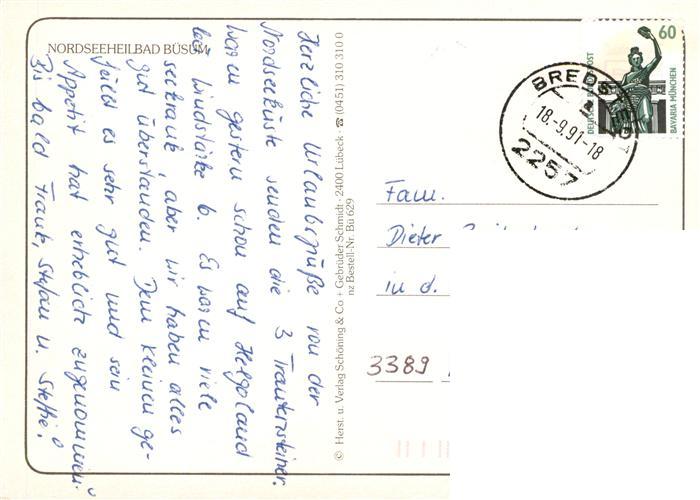 NORDSEEHEILBAD BÜSUM
Herzliche Urlaubsgrüße von der
Nordseeküste senden die 3 Trautensteiner.
Waren gestern schon auf Helgoland
bei Windstärke 6. Es waren viele
seekrank, aber wir haben alles
gut überstanden. Dem Kleinen ge-
fällt es sehr gut und sein
Appetit hat erheblich zugenommen.
Bis bald Frank, Stefan u. Steffi.
© Herst. u. Verlag Schöning & Co + Gebrüder Schmidt · 2400 Lübeck · ☎ (0451) 310 310 0
nz Bestell-Nr. Bü 629
60
DEUTSCHE BUNDESPOST
BAVARIA MÜNCHEN
BREDSTEDT
18.-9.91-18
2257
Fam.
Dieter
in d.
3389